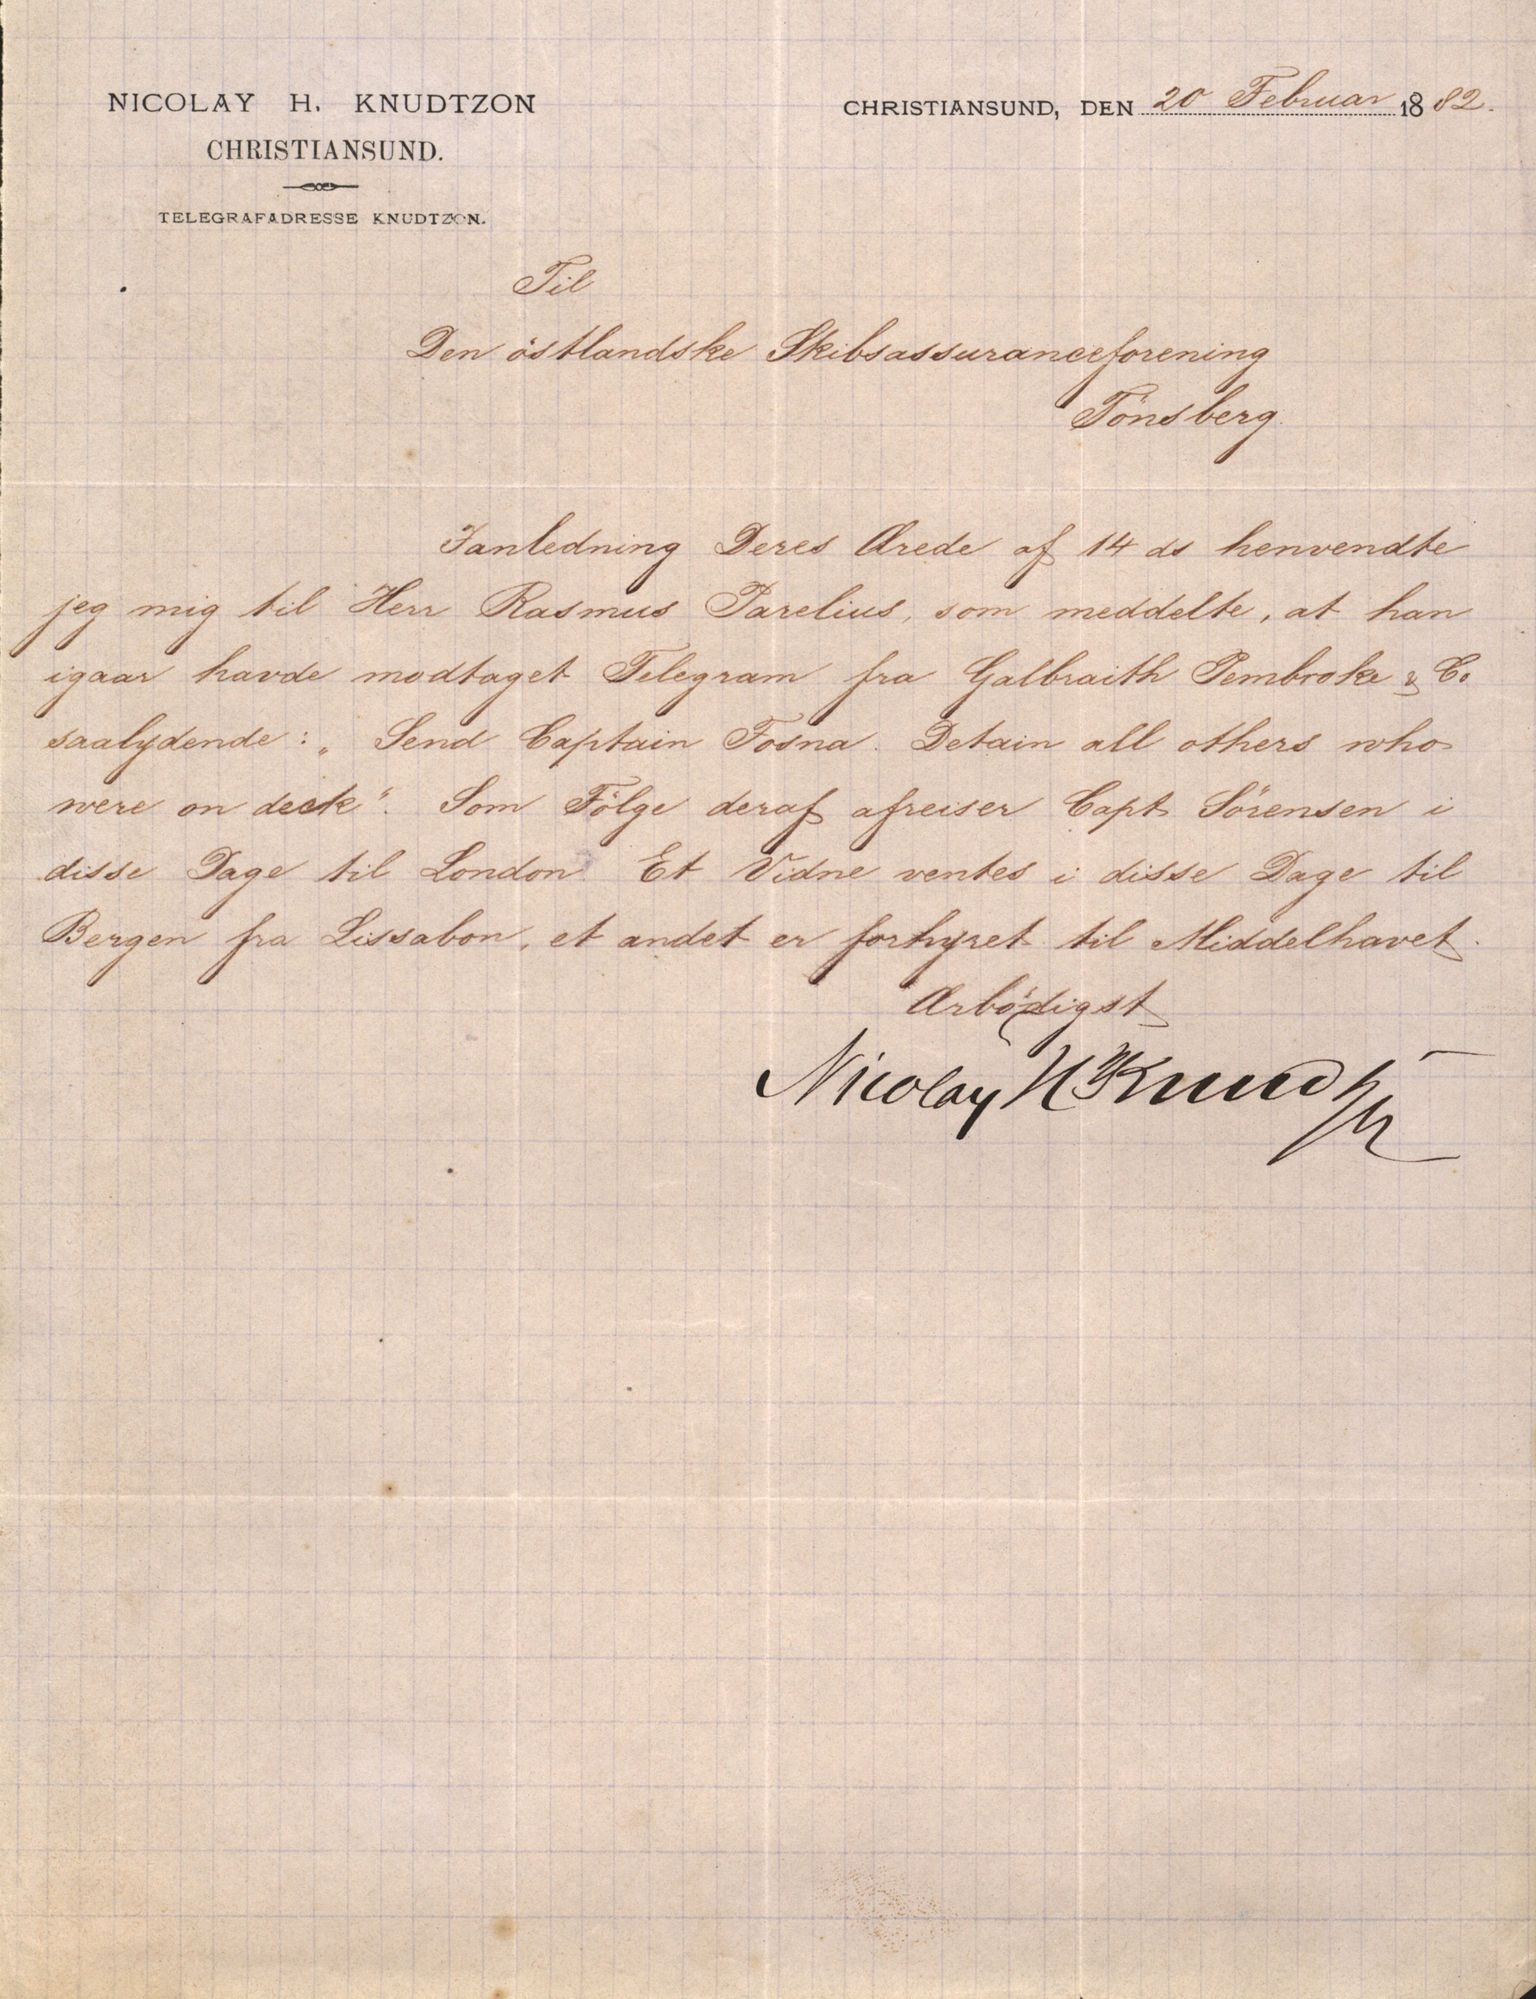 NICOLAY H. KNUDTZON
CHRISTIANSUND.
TELEGRAFADRESSE KNUDTZON.
CHRISTIANSUND, DEN 20 Februar 1882.
Til
Den östlandske Skibsassuranceforening
Tönsberg.
Ianledning Deres Ærede af 14 ds henvendte
jeg mig til Herr Rasmus Parelius, som meddelte, at han
igaar havde modtaget Telegram fra Galbraith Pembroke & Co
saalydende: „Send Captain Fosna. Detain all others who
were on deck“. Som Fölge deraf afreiser Capt Sörensen i
disse Dage til London. Et Vidne ventes i disse Dage til
Bergen fra Lissabon, et andet er forhyret til Middelhavet.
Ærbödigst
Nicolay H Knudtzon